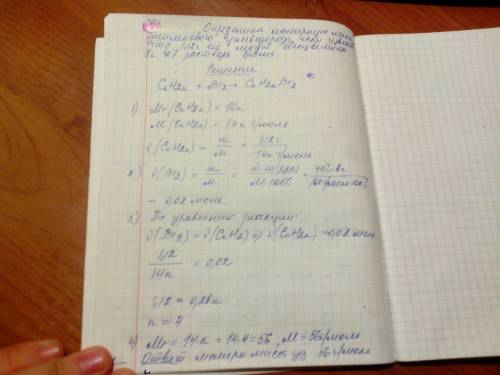 Определите молярную массу
этиленового углеводорода, если
1,12г его может обесцветить
8г 40% раствора брома
Решение
CnH2n + Br2 → CnH2nBr2
1) Mr(CnH2n) = 14n
M(CnH2n) = 14n г/моль
ν(CnH2n) = m/M = 1,12г/14n г/моль
2) ν(Br2) = m/M = ω·m(рра)/M·100% = 40%·8г/160г/моль·100%
= 0,02 моль
3) По уравнению реакции
ν(Br2) = ν(CnH2n) ⇒ ν(CnH2n) = 0,02 моль
1,12/14n = 0,02
1,12 = 0,28n
n = 4
4) Mr = 14·n = 14·4 = 56, M = 56г/моль
Ответ: молярн масса у/в 56г/моль